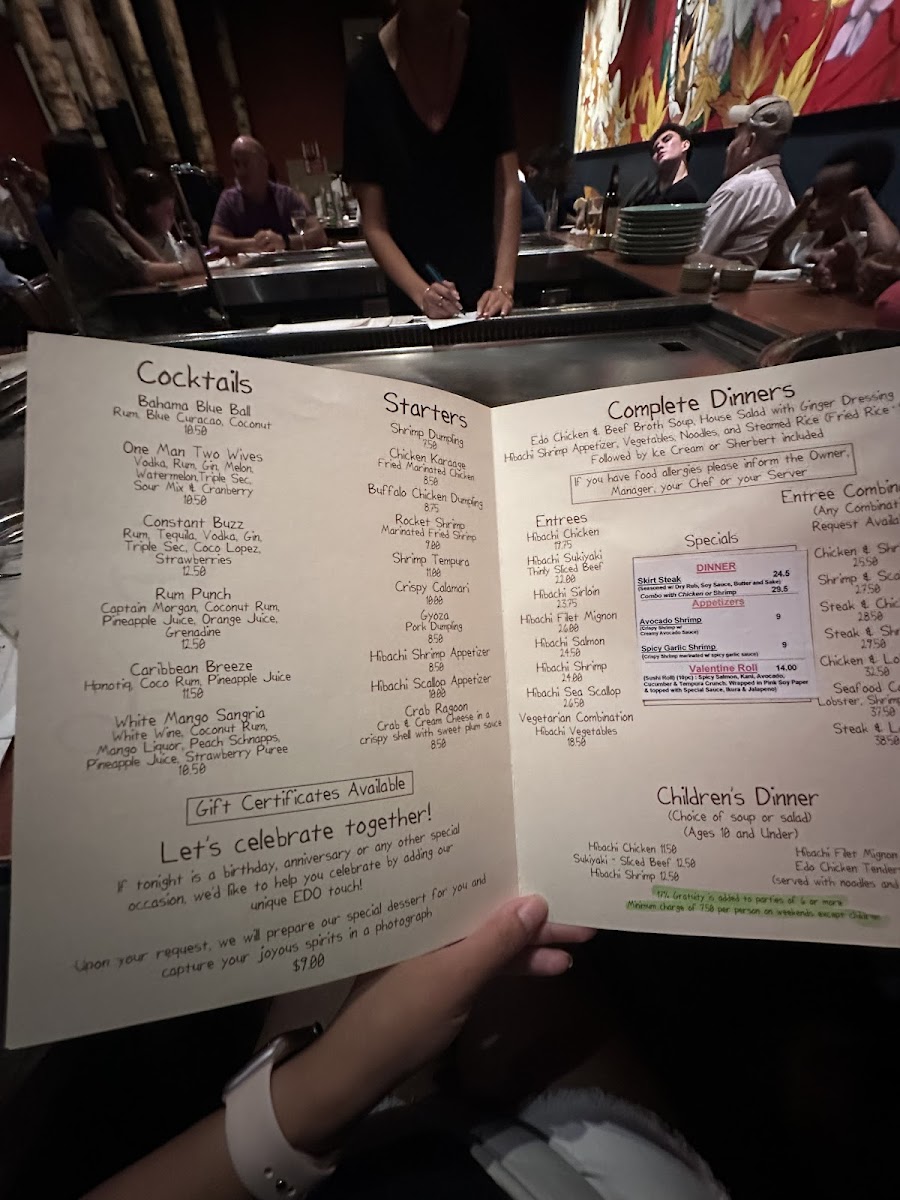 Cocktails
Bahama Blue Ball
Rum, Blue Curacao, Coconut
10.50
One Man Two Wives
Vodka, Rum, Gin, Melon,
Watermelon,Triple Sec,
Sour Mix & Cranberry
10.50
Constant Buzz
Rum, Tequila, Vodka, Gin,
Triple Sec, Coco Lopez,
Strawberries
12.50
Rum Punch
Captain Morgan, Coconut Rum,
Pineapple Juice, Orange Juice,
Grenadine
12.50
Caribbean Breeze
Hpnotiq, Coco Rum, Pineapple Juice
11.50
White Mango Sangria
White Wine, Coconut Rum,
Mango Liquor, Peach Schnapps,
Pineapple Juice, Strawberry Puree
10.50
Starters
Shrimp Dumpling
7.50
Chicken Karaage
Fried Marinated Chicken
8.50
Buffalo Chicken Dumpling
8.75
Rocket Shrimp
Marinated Fried Shrimp
9.00
Shrimp Tempura
11.00
Crispy Calamari
10.00
Gyoza
Pork Dumpling
8.50
Hibachi Shrimp Appetizer
8.50
Hibachi Scallop Appetizer
10.00
Crab Ragoon
Crab & Cream Cheese in a
crispy shell with sweet plum sauce
8.50
Gift Certificates Available
Let's celebrate together!
If tonight is a birthday, anniversary or any other special
occasion, we'd like to help you celebrate by adding our
unique EDO touch!
Upon your request, we will prepare our special dessert for you and
capture your joyous spirits in a photograph
$9.00
Complete Dinners
Edo Chicken & Beef Broth Soup, House Salad with Ginger Dressing
Hibachi Shrimp Appetizer, Vegetables, Noodles, and Steamed Rice (Fried Rice -
Followed by Ice Cream or Sherbert included
If you have food allergies please inform the Owner,
Manager, your Chef or your Server
Entrees
Hibachi Chicken
19.75
Hibachi Sukiyaki
Thinly Sliced Beef
22.00
Hibachi Sirloin
23.75
Hibachi Filet Mignon
26.00
Hibachi Salmon
24.50
Hibachi Shrimp
24.00
Hibachi Sea Scallop
26.50
Vegetarian Combination
Hibachi Vegetables
18.50
Specials
DINNER
Skirt Steak 24.5
(Seasoned w/ Dry Rub, Soy Sauce, Butter and Sake)
Combo with Chicken or Shrimp 29.5
Appetizers
Avocado Shrimp 9
(Crispy Shrimp w/
Creamy Avocado Sauce)
Spicy Garlic Shrimp 9
(Crispy Shrimp marinated w/ spicy garlic sauce)
Valentine Roll 14.00
(Sushi Roll) (10pc) : Spicy Salmon, Kani, Avocado,
Cucumber & Tempura Crunch. Wrapped in Pink Soy Paper
& topped with Special Sauce, Ikura & Jalapeno)
Entree Combin
(Any Combinat
Request Availa
Chicken & Shr
25.50
Shrimp & Sca
27.50
Steak & Chic
28.50
Steak & Shr
29.50
Chicken & Lo
32.50
Seafood Co
Lobster, Shrimp
37.50
Steak & L
38.50
Children's Dinner
(Choice of soup or salad)
(Ages 10 and Under)
Hibachi Chicken 11.50
Sukiyaki - Sliced Beef 12.50
Hibachi Shrimp 12.50
Hibachi Filet Mignon
Edo Chicken Tender
(served with noodles and
17% Gratuity is added to parties of 6 or more
Minimum charge of 7.50 per person on weekends except children